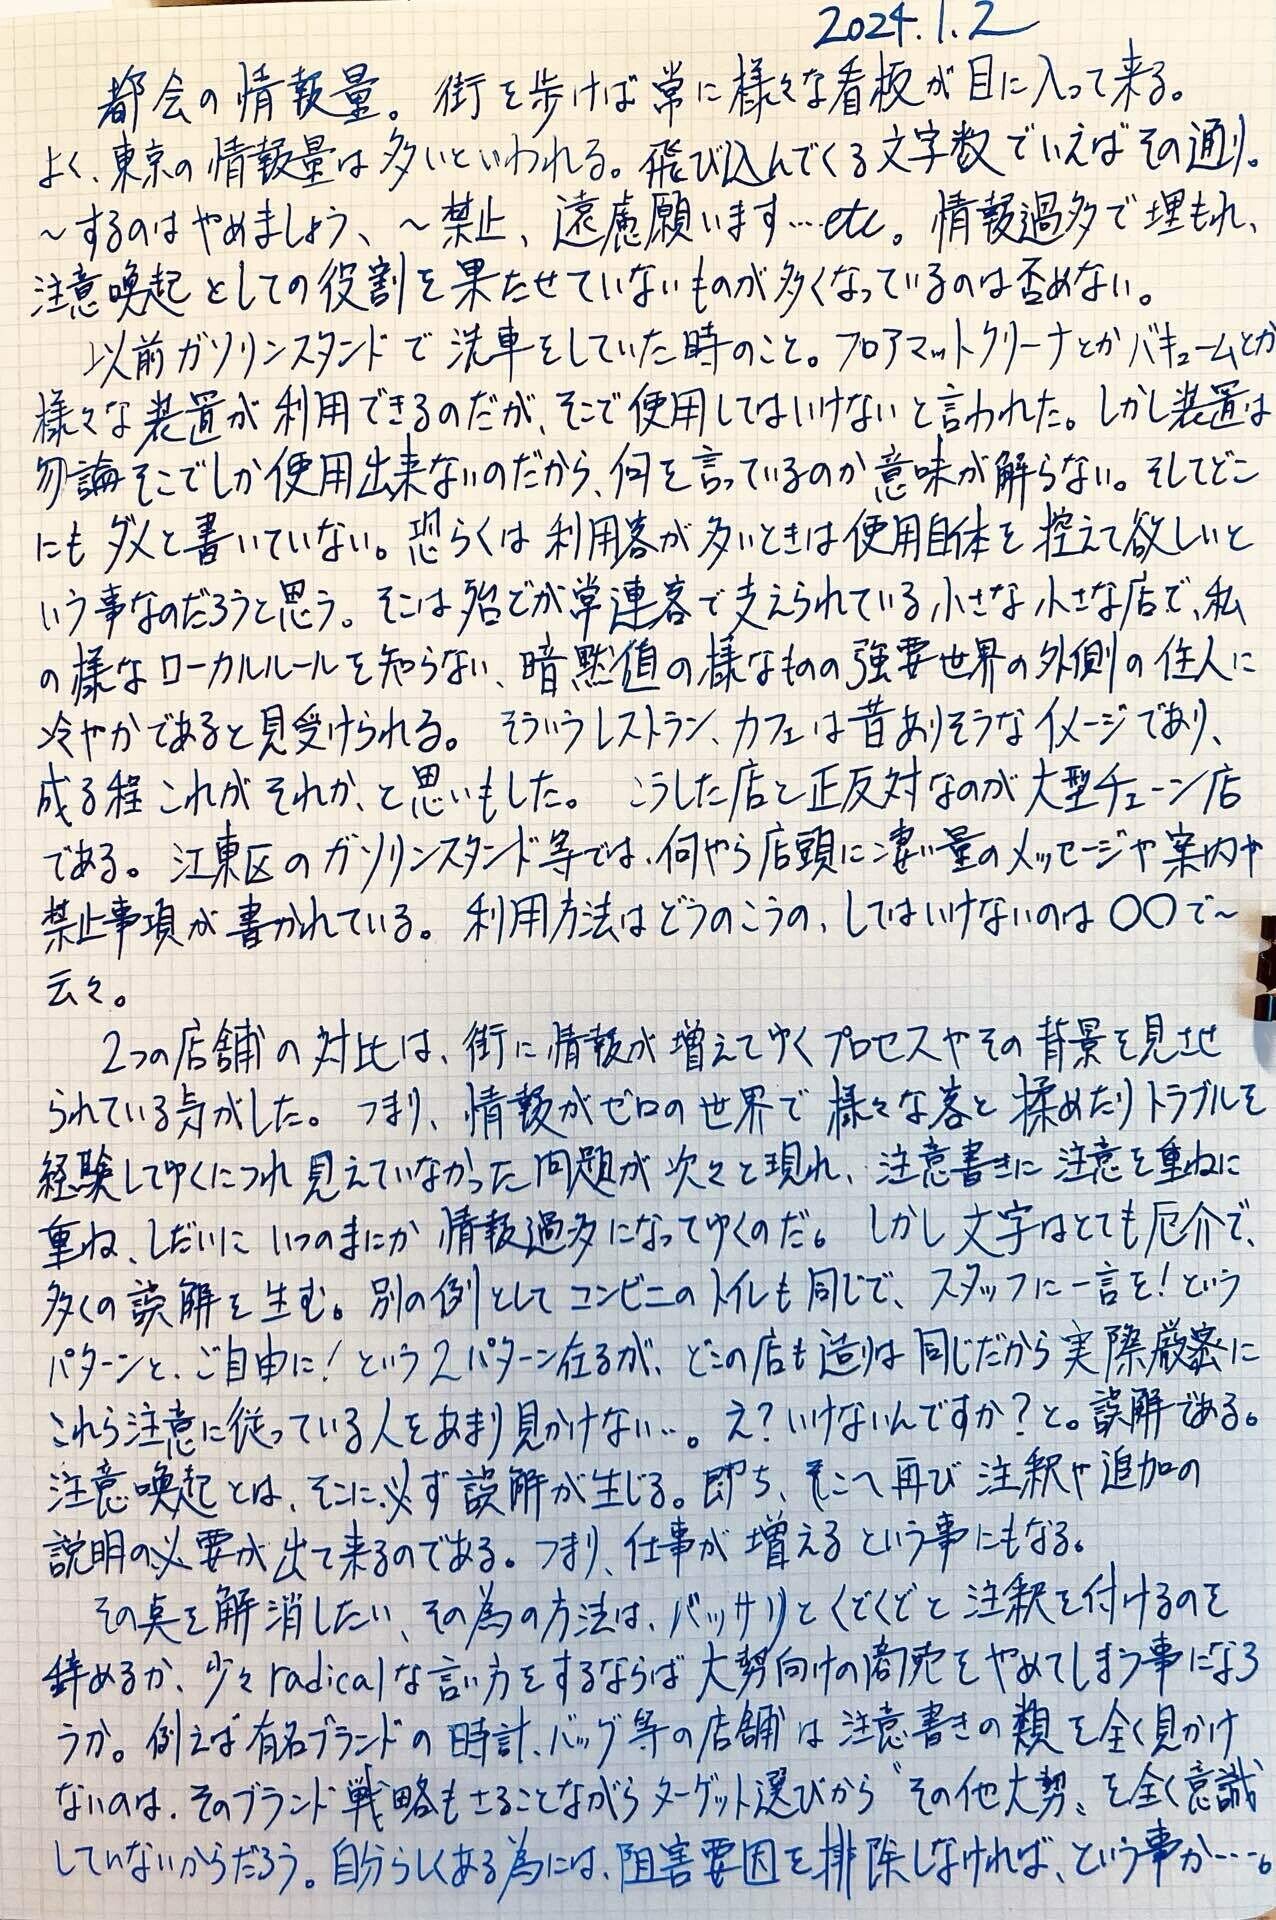 2024.1.2
都会の情報量。街を歩けば常に様々な看板が目に入って来る。
よく、東京の情報量は多いといわれる。飛び込んでくる文字数でいえばその通り。
〜するのはやめましょう、〜禁止、遠慮願います…etc。情報過多で埋もれ、
注意喚起としての役割を果たせていないものが多くなっているのは否めない。
以前ガソリンスタンドで洗車をしていた時のこと。フロアマットクリーナとかバキュームとか
様々な装置が利用できるのだが、そこで使用してはいけないと言われた。しかし装置は
勿論そこでしか使用出来ないのだから、何を言っているのか意味が解らない。そしてどこ
にもダメと書いていない。恐らくは利用客が多いときは使用自体を控えて欲しいと
いう事なのだろうと思う。そこは殆どが常連客で支えられている小さな小さな店で、私
の様なローカルルールを知らない、暗黙値の様なものの強要世界の外側の住人に
冷やかであると見受けられる。そういうレストラン、カフェは昔ありそうなイメージであり、
成る程これがそれか、と思いもした。こうした店と正反対なのが大型チェーン店
である。江東区のガソリンスタンド等では、何やら店頭に凄い量のメッセージや案内や
禁止事項が書かれている。利用方法はどうのこうの、してはいけないのは〇〇で〜
云々。
2つの店舗の対比は、街に情報が増えてゆくプロセスやその背景を見させ
られている気がした。つまり、情報がゼロの世界で様々な客と揉めたりトラブルを
経験してゆくにつれ見えていなかった問題が次々と現れ、注意書きに注意を重ねに
重ね、しだいにいつのまにか情報過多になってゆくのだ。しかし文字はとても厄介で、
多くの誤解を生む。別の例としてコンビニのトイレも同じで、スタッフに一言を!という
パターンと、ご自由に!という2パターン在るが、どこの店も造りは同じだから実際厳密に
これら注意に従っている人をあまり見かけない…。え?いけないんですか?と。誤解である。
注意喚起とは、そこに必ず誤解が生じる。即ち、そこへ再び注釈や追加の
説明の必要が出て来るのである。つまり、仕事が増えるという事にもなる。
その点を解消したい、その為の方法は、バッサリとくどくどと注釈を付けるのを
辞めるか、少々radicalな言い方をするならば大勢向けの商売をやめてしまう事になろ
うか。例えば有名ブランドの時計、バッグ等の店舗は注意書きの類を全く見かけ
ないのは、そのブランド戦略もさることながらターゲット選びから〝その他大勢〟を全く意識
していないからだろう。自分らしくある為には、阻害要因を排除しなければ、という事か…。